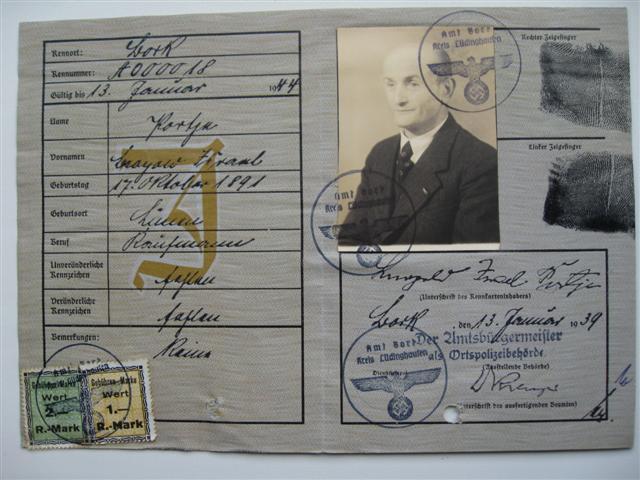 Kennort: Bork
Kennummer: A000018
Gültig bis 13. Januar 1944
Name Portje
Vornamen Israel
Geburtstag 17. Oktober 1891
Geburtsort Lünne
Beruf Kaufmann
Unveränderliche Kennzeichen fehlen
Veränderliche Kennzeichen fehlen
Bemerkungen: Keine
J
Gebühren-Marke
Wert
2.-
R.-Mark
Gebühren-Marke
Wert
1.—
R.-Mark
Amt Bork
Kreis Lüdinghausen
Rechter Zeigefinger
Linker Zeigefinger
Amt Bork
Kreis Lüdinghausen
Israel
(Unterschrift des Kennkarteninhabers)
Bork, den 13. Januar 1939
Der Amtsbürgermeister
als Ortspolizeibehörde.
(Ausstellende Behörde)
Amt Bork
Kreis Lüdinghausen
(Unterschrift des ausfertigenden Beamten)